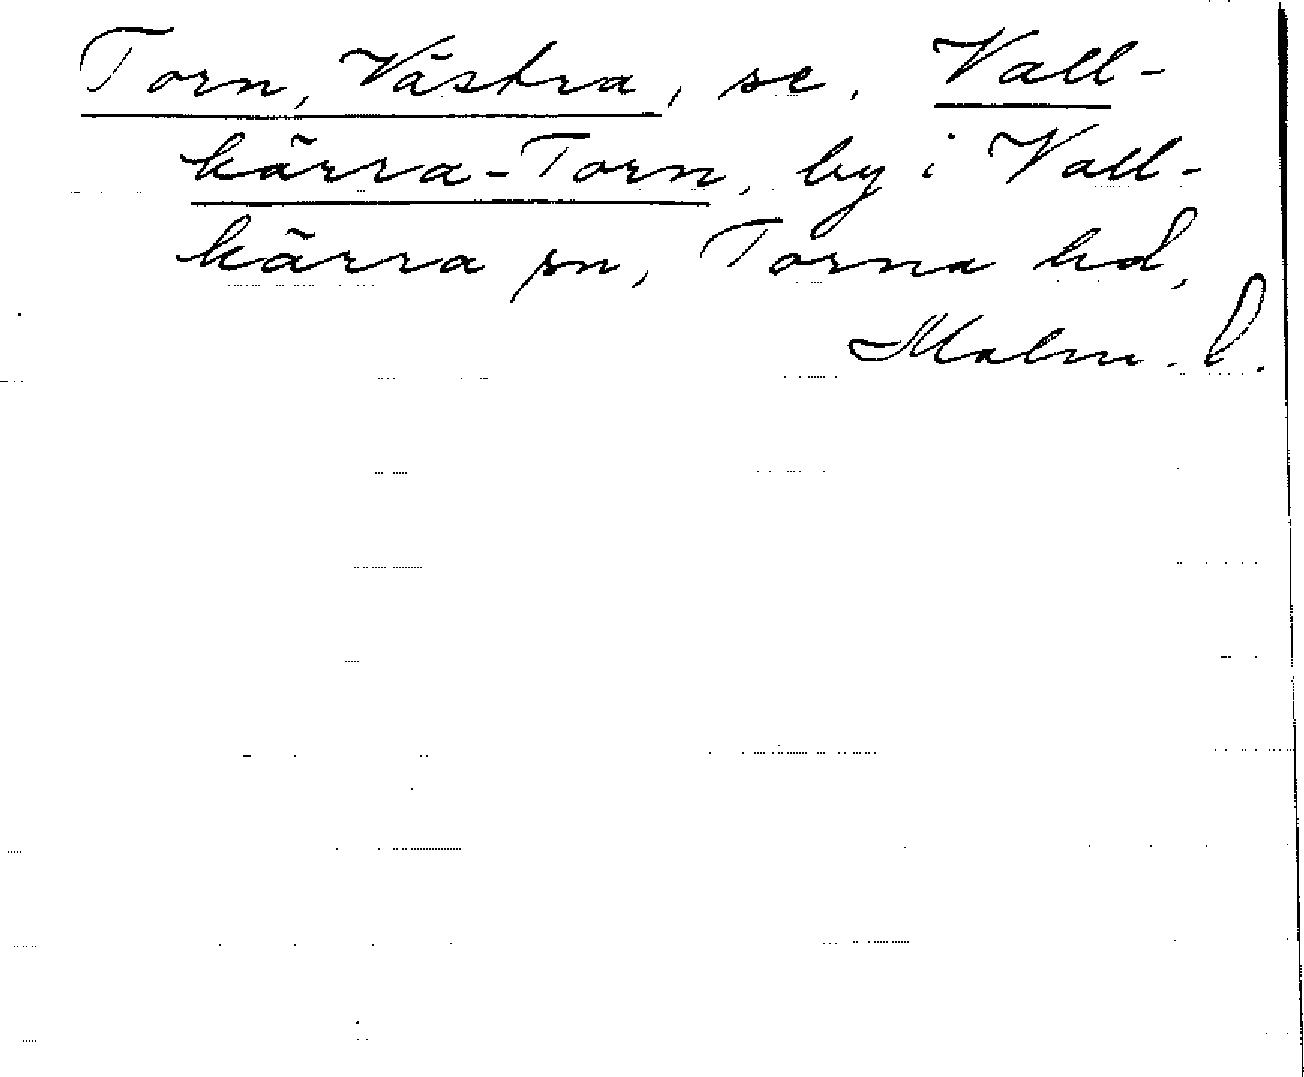 Torn, Västra, se. Vall-
kärra-Torn, by i Vall-
kärra sn, Torna hd,
Malm. l.